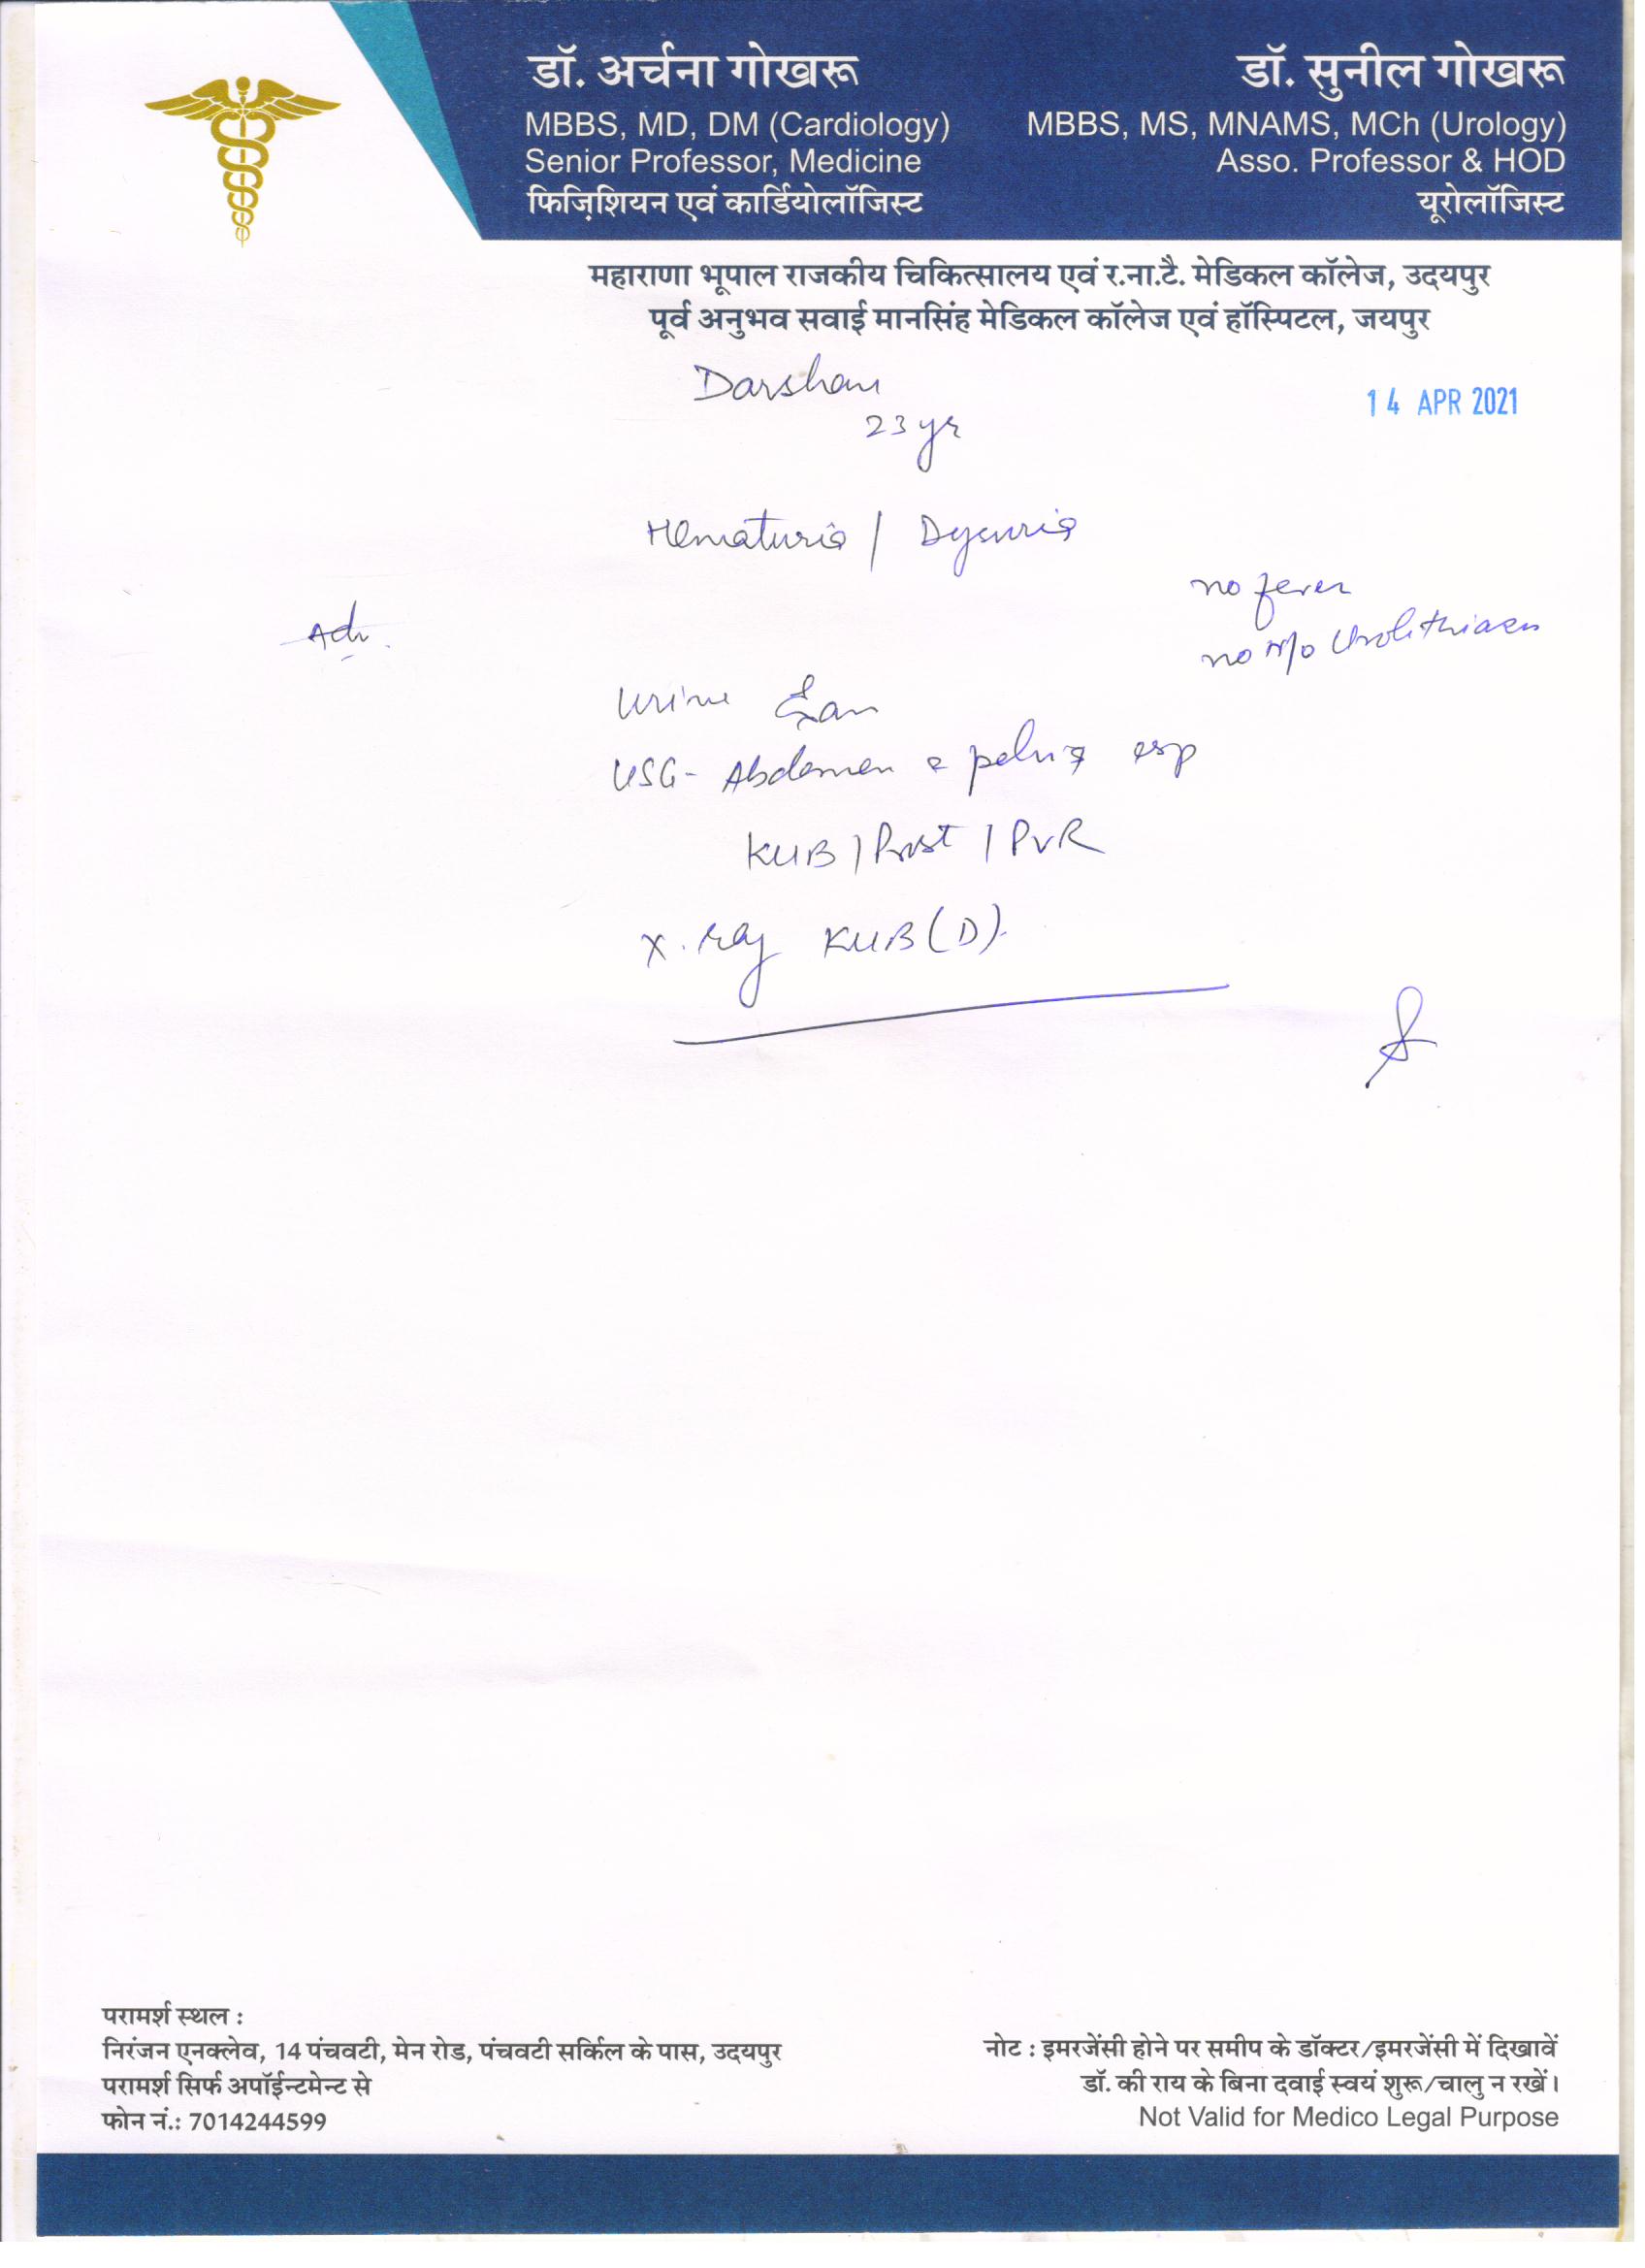 डॉ. अर्चना गोखरू
MBBS, MD, DM (Cardiology)
Senior Professor, Medicine
फिज़िशियन एवं कार्डियोलॉजिस्ट
डॉ. सुनील गोखरू
MBBS, MS, MNAMS, MCh (Urology)
Asso. Professor & HOD
यूरोलॉजिस्ट
महाराणा भूपाल राजकीय चिकित्सालय एवं र.ना.टै. मेडिकल कॉलेज, उदयपुर
पूर्व अनुभव सवाई मानसिंह मेडिकल कॉलेज एवं हॉस्पिटल, जयपुर
Darshan
14 APR 2021
23 yr
Hematuria / Dysuria
no fever
Adv.
no H/o Urolithiasis
Urine Exam
USG- Abdomen & pelvis esp
KUB / Prost / PVR
X-ray KUB (D)
परामर्श स्थल :
निरंजन एनक्लेव, 14 पंचवटी, मेन रोड, पंचवटी सर्किल के पास, उदयपुर
परामर्श सिर्फ अपॉईन्टमेन्ट से
फोन नं.: 7014244599
नोट : इमरजेंसी होने पर समीप के डॉक्टर/इमरजेंसी में दिखावें
डॉ. की राय के बिना दवाई स्वयं शुरू/चालु न रखें।
Not Valid for Medico Legal Purpose